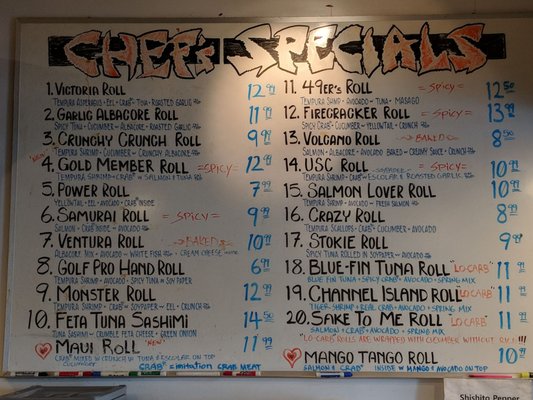 CHEF'S SPECIALS
1. VICTORIA ROLL 12.99
TEMPURA ASPARAGUS - EEL - CRAB - TUNA - ROASTED GARLIC
2. GARLIC ALBACORE ROLL 11.99
SPICY TUNA - CUCUMBER - ALBACORE - ROASTED GARLIC
3. CRUNCHY CRUNCH ROLL 9.99
TEMPURA SHRIMP - CUCUMBER - CRUNCHY ALBACORE
NEW
4. GOLD MEMBER ROLL =SPICY= 12.99
TEMPURA SHRIMP - CRAB W SALMON & TUNA
5. POWER ROLL 7.99
YELLOWTAIL - EEL - AVOCADO - CRAB INSIDE
6. SAMURAI ROLL =SPICY= 9.99
SALMON - CRAB INSIDE - AVOCADO
7. VENTURA ROLL BAKED 10.99
ALBACORE MIX - AVOCADO W WHITE FISH CREAM CHEESE
8. GOLF PRO HAND ROLL 6.99
TEMPURA SHRIMP - AVOCADO - SPICY TUNA W SOY PAPER
9. MONSTER ROLL 12.99
TEMPURA SHRIMP - CRAB W SOYPAPER - EEL - CRUNCH
10. FETA TUNA SASHIMI 14.50
TUNA SASHIMI - CRUMBLE FETA CHEESE - GREEN ONION
MAUI ROLL "NEW" 11.99
CRAB MIXED W CRUNCH W TUNA & ESCOLAR ON TOP
CUCUMBER
CRAB = imitation CRAB MEAT
11. 49ER'S ROLL =SPICY= 12.50
TEMPURA SHRIMP - AVOCADO W TUNA - MASAGO
12. FIRECRACKER ROLL =SPICY= 13.99
SPICY CRAB - CUCUMBER - YELLOWTAIL - CRUNCH
13. VOLCANO ROLL BAKED 8.50
SALMON - ALBACORE - AVOCADO BAKED W CREAMY SAUCE - CRUNCH
14. USC ROLL =SPICY= 10.99
TEMPURA SHRIMP - CRAB W ESCOLAR & ROASTED GARLIC
15. SALMON LOVER ROLL 10.99
TEMPURA SHRIMP - AVOCADO W FRESH SALMON
16. CRAZY ROLL 8.99
TEMPURA SCALLOPS - CRAB - CUCUMBER - AVOCADO
17. STOKIE ROLL 9.99
SPICY TUNA ROLLED IN SOYPAPER W AVOCADO
18. BLUE-FIN TUNA ROLL "LO-CARB" 11.99
BLUE FIN TUNA - SPICY CRAB - AVOCADO - SPRING MIX
19. CHANNEL ISLAND ROLL "LO-CARB" 11.99
TIGER SHRIMP - REAL CRAB - AVOCADO - SPRING MIX
20. SAKE TO ME ROLL "LO-CARB" 11.99
SALMON - CRAB - AVOCADO - SPRING MIX
"LO-CARB" ROLLS ARE WRAPPED WITH CUCUMBER WITHOUT
MANGO TANGO ROLL 10.99
SALMON & CRAB INSIDE W MANGO & AVOCADO ON TOP
Shishito Pepper